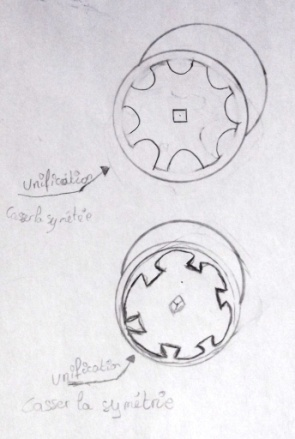 unification
Casser la symétrie
unification
Casser la symétrie